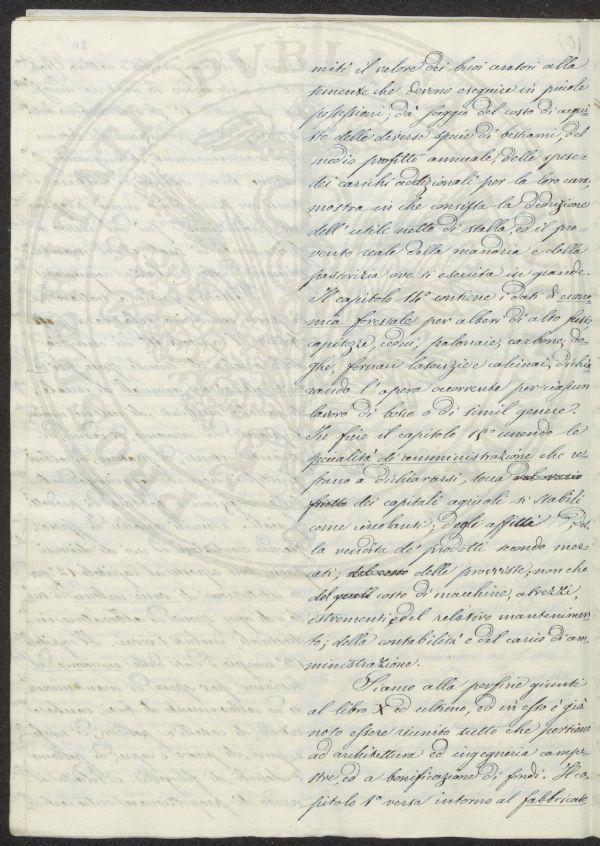 miti il valore dei buoi aratori alla
semente che devono eseguire in picole
possessioni; dà saggio del costo di acqui
sto delle diverse specie di bestiami, del
medio profitto annuale, delle spese e
dei carichi addizionali per la loro cura,
mostra in che consista la deduzione
dell'utile netto di stalla, ed il pro
vento reale della mandria e della
pastorizia ove si esercita in grande.
Il capitolo 14º contiene i dati di econo
mia forestale per alberi di alto fusto
capitozze, cedui, palonaie, carbone, do
ghe, fornaci laterizie e calcinai, dichia
rando l'opera occorrente per ciascun
lavoro di bosco o di simil genere.
In fine il capitolo 15º unendo le
specialità di amministrazione che re
stano a dichiararsi, tocca del vario
frutto dei capitali agricoli sì stabili
come circolanti; degli affitti del
la vendita de' prodotti secondo mer
cati; del costo delle provviste, non che
del costo di macchine, attrezzi,
istromenti, e del relativo mantenimen
to; della contabilità e del carico di am
ministrazione.
Siamo alla perfine giunti
al libro X ed ultimo, ed in esso è già
noto essere riunito tutto che pertiene
ad architettura ed ingegneria campe
stre, ed a bonificazione di fondi. Il ca
pitolo 1º versa intorno al fabbricato